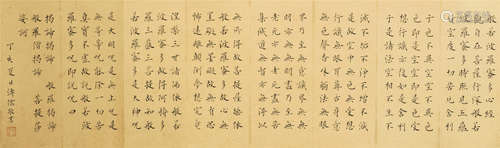 般若波羅蜜多心經
觀自在菩薩行深般若
波羅蜜多時照見五蘊
皆空度一切苦厄舍利
子色不異空空不異色
色即是空空即是色受
想行識亦復如是舍利
子是諸法空相不生不
滅不垢不淨不增不減
是故空中無色無受想
行識無眼耳鼻舌身意
無色聲香味觸法無眼
界乃至無意識界無無
明亦無無明盡乃至無
老死亦無老死盡無苦
集滅道無智亦無得以
無所得故菩提薩埵依
般若波羅蜜多故心無
罣礙無罣礙故無有恐
怖遠離顛倒夢想究竟
涅槃三世諸佛依般若
波羅蜜多故得阿耨多
羅三藐三菩提故知般若
波羅蜜多是大神咒
是大明咒是無上咒是
無等等咒能除一切苦
真實不虛故說般若波
羅蜜多咒即說咒曰
揭諦揭諦 般羅揭諦
般羅僧揭諦 菩提薩
婆訶
丁亥夏日溥儒敬書